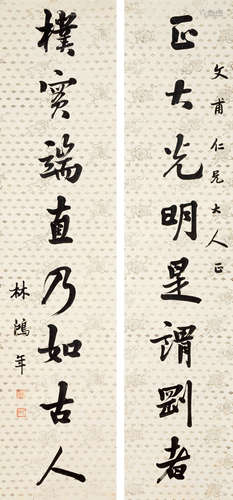 文甫仁兄大人正
正大光明是謂剛者
樸實端直乃如古人
林鴻年